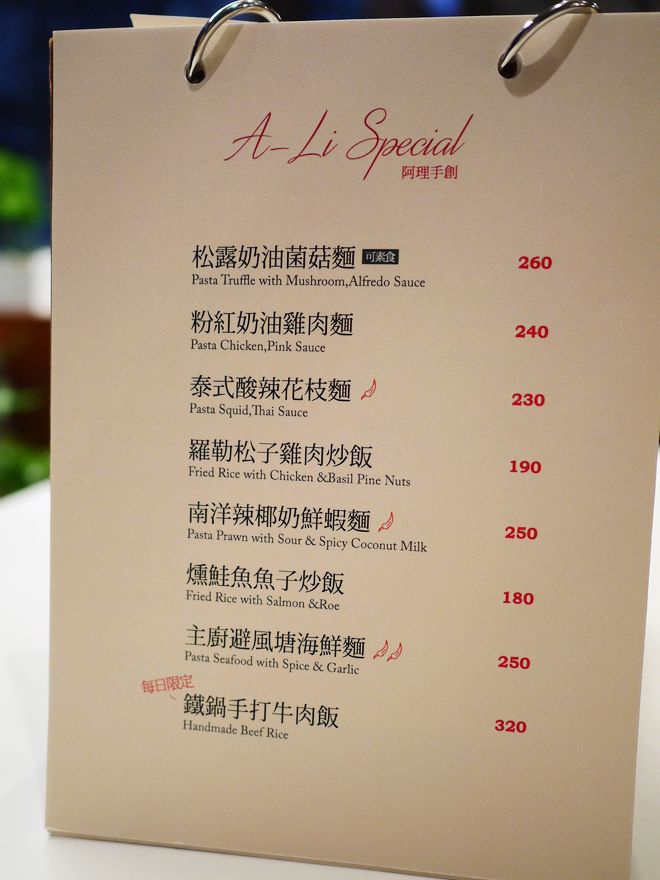 A-Li Special
阿理手創
松露奶油菌菇麵 可素食 260
Pasta Truffle with Mushroom,Alfredo Sauce
粉紅奶油雞肉麵 240
Pasta Chicken,Pink Sauce
泰式酸辣花枝麵 230
Pasta Squid,Thai Sauce
羅勒松子雞肉炒飯 190
Fried Rice with Chicken &Basil Pine Nuts
南洋辣椰奶鮮蝦麵 250
Pasta Prawn with Sour & Spicy Coconut Milk
燻鮭魚魚子炒飯 180
Fried Rice with Salmon &Roe
主廚避風塘海鮮麵 250
Pasta Seafood with Spice & Garlic
每日限定
鐵鍋手打牛肉飯 320
Handmade Beef Rice